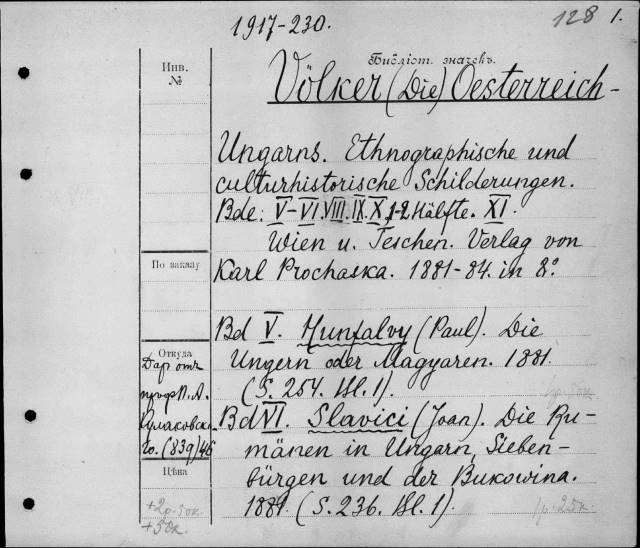 1917-230.
128 1.
Инв. №
Библіот. значекъ.
Völker (Die) Oesterreich-
Ungarns. Ethnographische und
culturhistorische Schilderungen.
Bde: V-VI. VIII. IX. X, 1-2 Hälfte. XI.
Wien u. Teschen. Verlag von
По заказу
Karl Prochaska. 1881-84. in 8º.
Bd V. Hunfalvy (Paul). Die
Откуда
Ungern oder Magyaren. 1881.
Дар отъ
(S. 254. Bl. 1).
проф. П. А.
Кулаковска-
Bd VI. Slavici (Joan). Die Ru-
го. (839)46
mänen in Ungarn, Sieben-
Цѣна
bürgen und der Bukowina.
1881. (S. 236. Bl. 1).
+2р. 50к.
1р. 25к.
+50к.